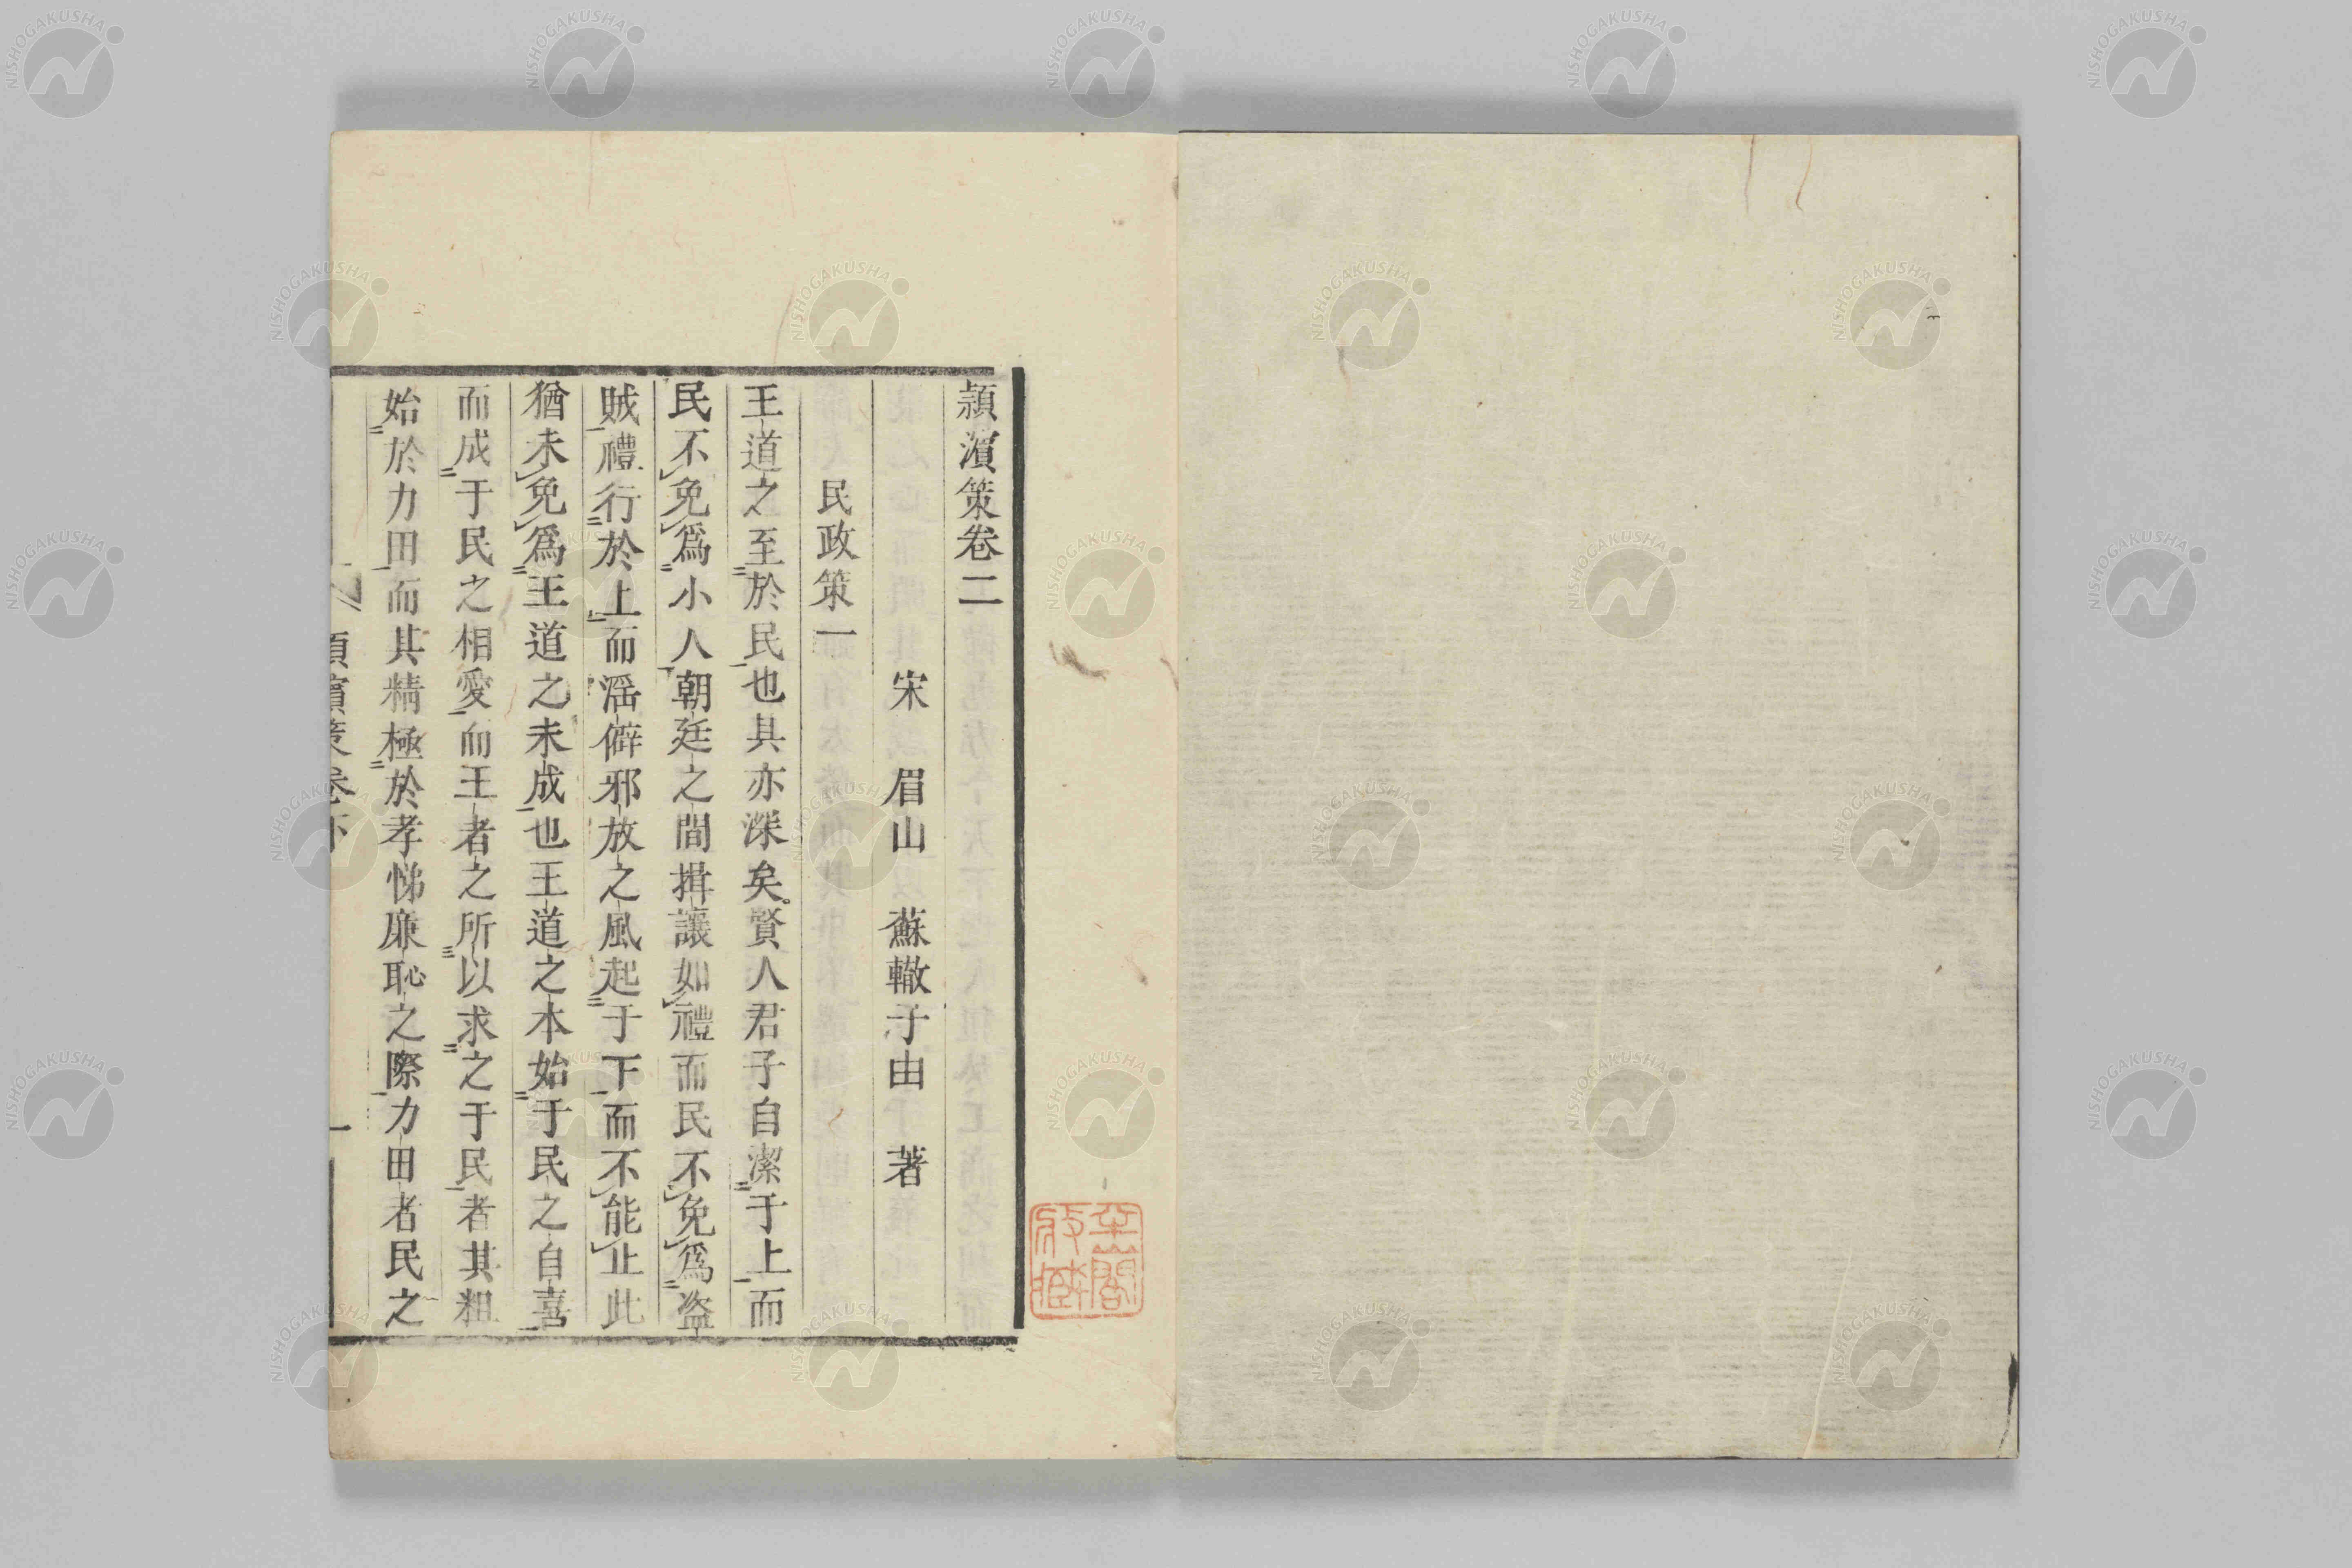 頴濵策卷二
宋 眉山 蘇轍子由 著
民政策一
王道之至於民也其亦深矣賢人君子自潔于上而
民不免爲小人朝廷之間揖讓如禮而民不免爲盗
賊禮行於上而滛僻邪放之風起于下而不能止此
猶未免爲王道之未成也王道之本始于民之自喜
而成于民之相愛而王者之所以求之于民者其粗
始於力田而其精極於孝悌廉恥之際力田者民之
NISHOGAKUSHA